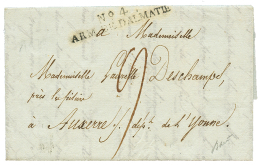 No 4
ARM. DALMATIE
à Mademoiselle
Mademoiselle Deschamps,
près la
à Auxerre, dépt. de l'Yonne.